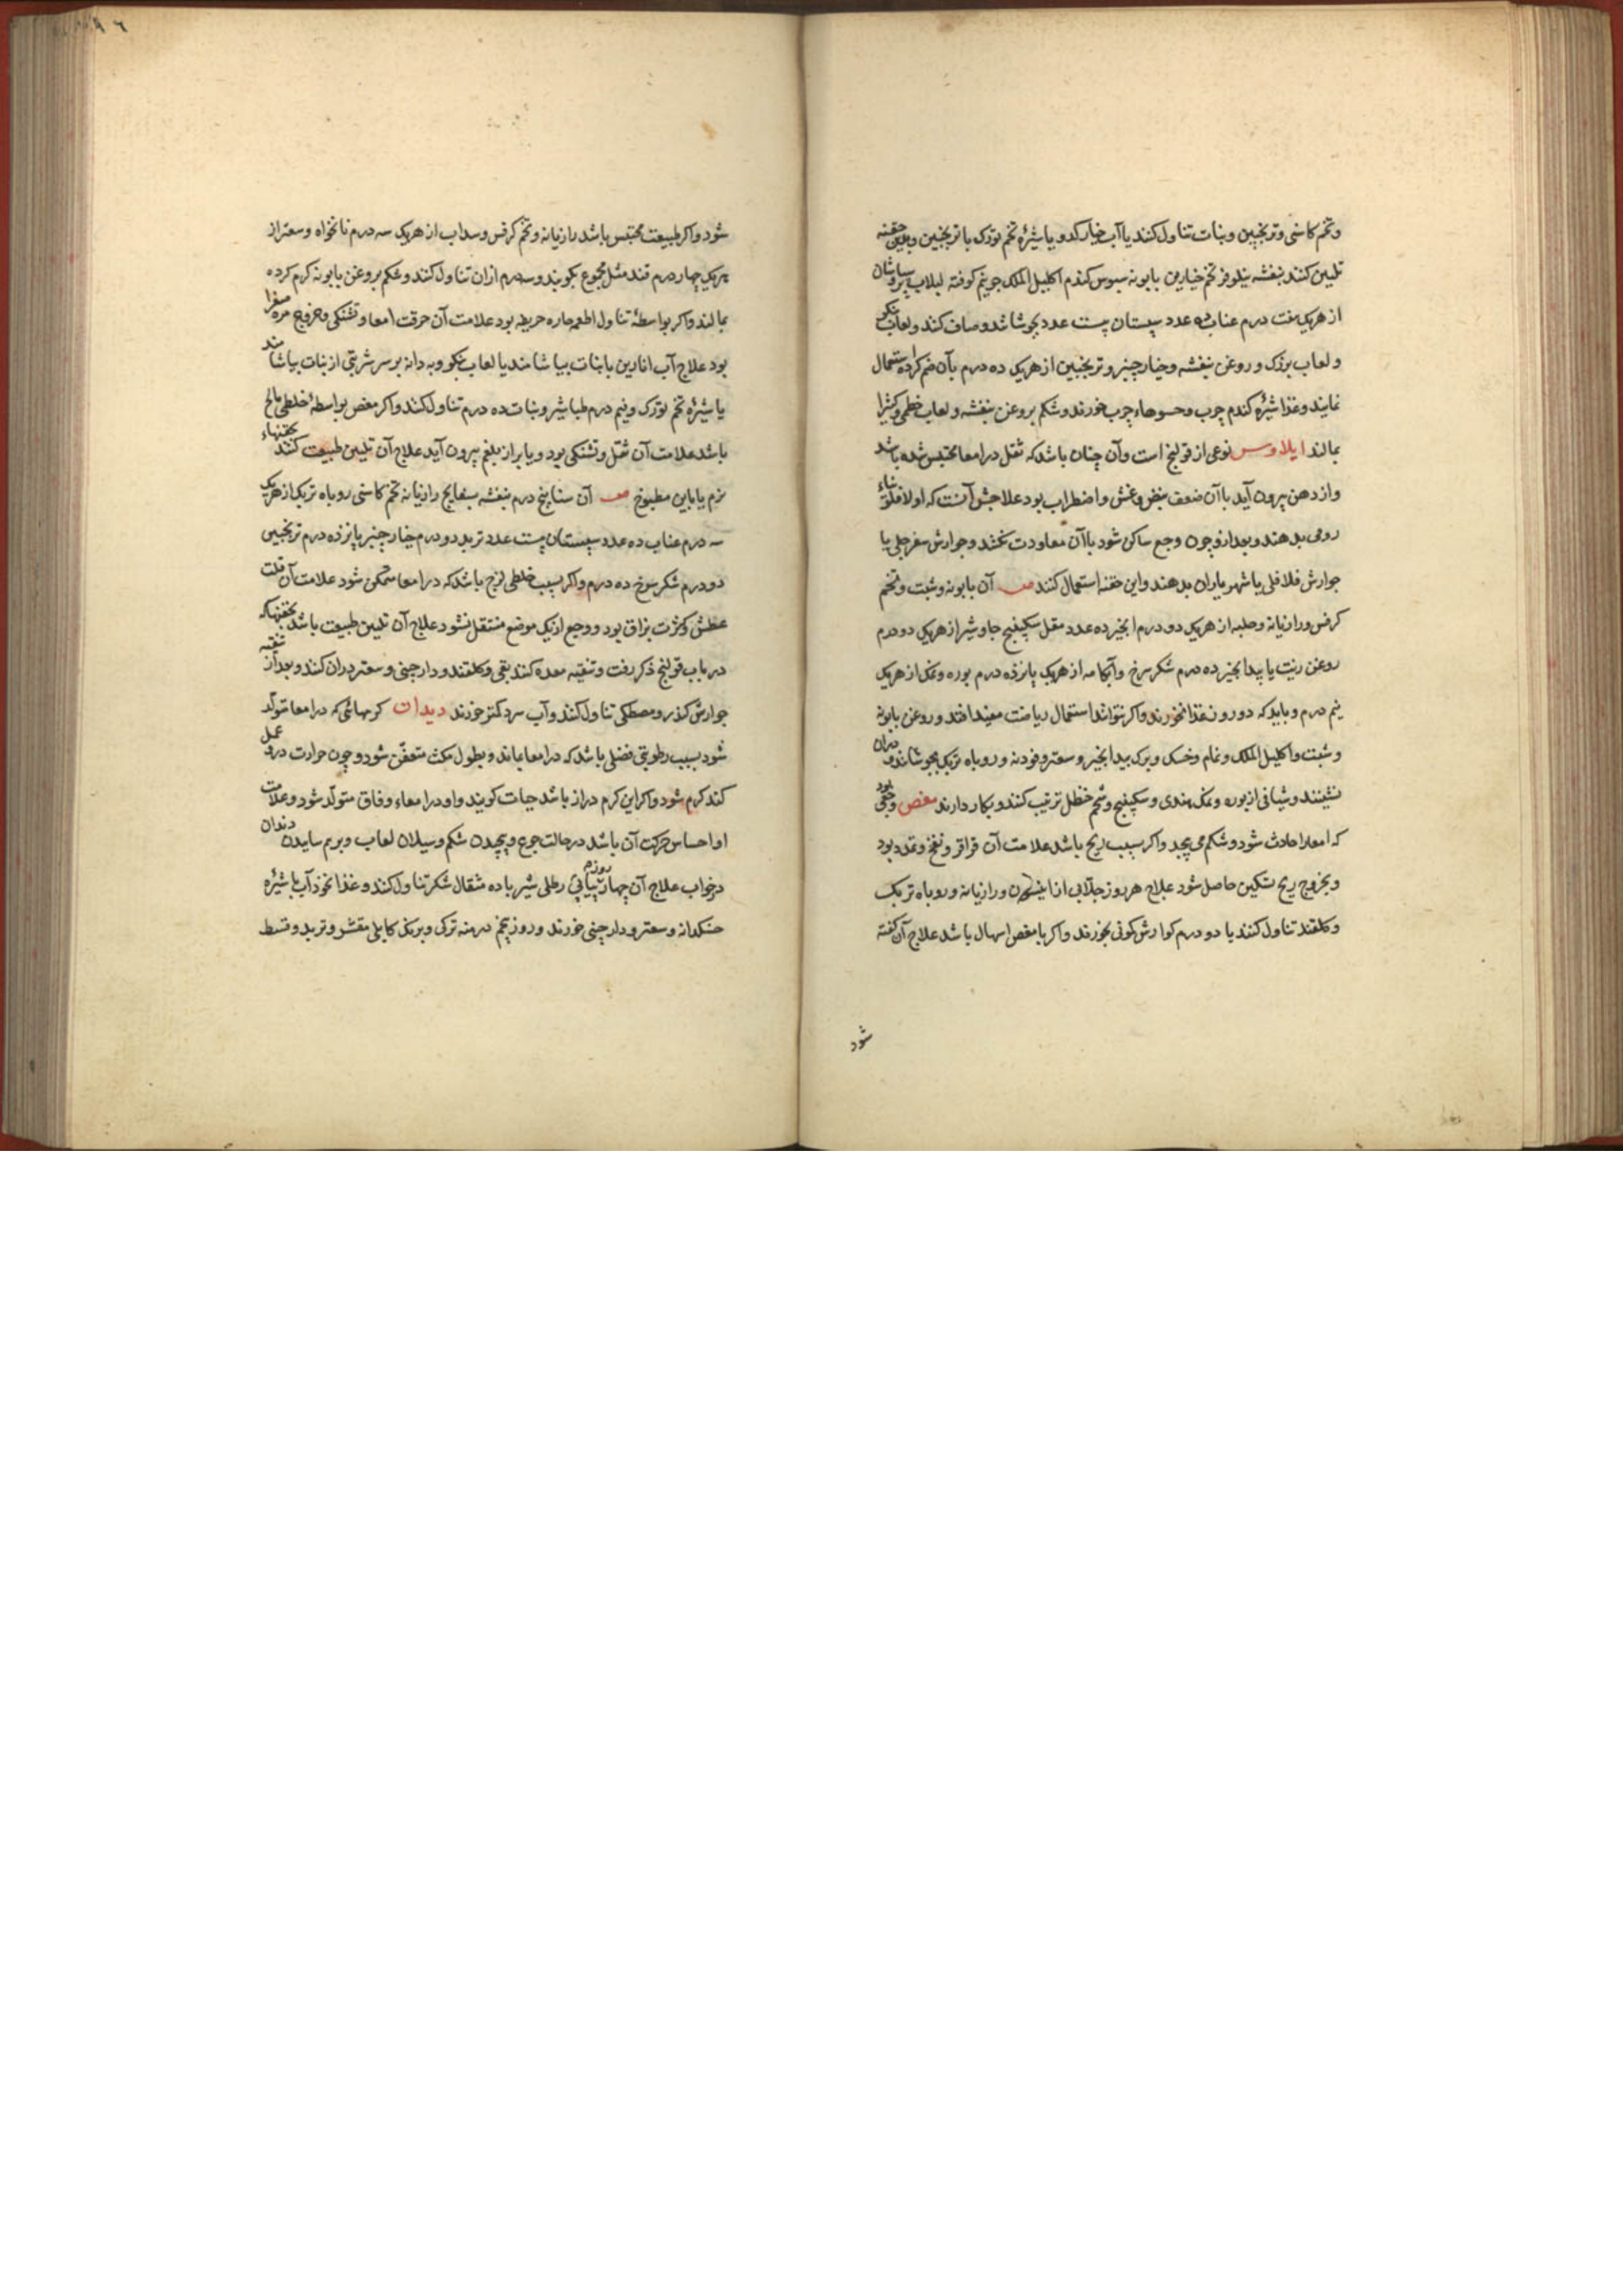 وتخم کاسنی وترنجبین ونبات تناول کنند یا آب خیار کدو یا شیرهٔ تخم تورک با ترنجبین وبدین حقنه
تلیین کنند بنفشه نیلوفر تخم خیارین بابونه سبوس کندم اکلیل الملک جو نیم کوفته لبلاب پرسیاوشان
از هریک هفت درم عناب ده عدد سپستان بیست عدد بجوشانند وصاف کنند ولعاب بنکو
ولعاب بزرک وروغن بنفشه وخیار چنبر وترنجبین از هریک ده درم بآن ضم کرده استعمال
نمایند وغذا شیرهٔ کندم چرب وحسوهاء چرب خورند وشکم بروغن بنفشه ولعاب خطمی وکثیرا
بمالند ایلاوس نوعی از قولنج است وآن چنان باشد که ثقل در امعا محتبس شده باشد
واز دهن بیرون آید با آن ضعف نبض وغشی واضطراب بود علاجش آنست که اولا فلونیاء
رومی بدهند وبعد ازو چون وجع ساکن شود با آن معاودت نکند وجوارش سفرجلی یا
جوارش فلافلی یا شهریاران بدهند واین حقنه استعمال کنند صـ آن بابونه وشبت وتخم
کرفس ورازیانه وحلبه از هریک دو درم انجیر ده عدد مقل سکبینج جاوشیر از هریک دو درم
روغن زیت یا بیدانجیر ده درم شکر سرخ وآبکامه از هریک پانزده درم بوره ونمک از هریک
نیم درم وباید که دو روز غذا نخورند واکر نتوانند استعمال ریاضت مفید افتد وروغن بابونه
وشبت واکلیل الملک ونمام وخسک وبرک بیدانجیر وسعتر وفودنه وروباه تربک بجوشانند ودران
نشینند وشیافی از بوره ونمک هندی وسکبینج وشحم حنظل ترتیب کنند وبکار دارند مغص وجعی بود
که امعا را حادث شود وشکم می پیچد واکر بسبب ریح باشد علامت آن قراقر ونفخ وتمدد بود
وبخروج ریح تسکین حاصل شود علاج هر روز جلابی از انیسون ورازیانه وروباه تربک
وکلقند تناول کنند یا دو درم کوارش کمونی بخورند واکر با مغص اسهال باشد علاج آن کفته
شود
شود واکر طبیعت محتبس باشد رازیانه وتخم کرفس وسداب از هریک سه درم نانخواه وسعتر از
هریک چهار درم قند مثل مجموع بکوبند وسه درم ازان تناول کنند وشکم بروغن بابونه کرم کرده
بمالند واکر بواسطهٔ تناول اطعمه حاره حریفه بود علامت آن حرقت امعا وتشنکی وخروج مره صفرا
بود علاج آب انارین با نبات بیاشامند یا لعاب بنکو وبه دانه بر سر شربتی از نبات بیاشامند
یا شیرهٔ تخم تورک ونیم درم طباشیر ونبات ده درم تناول کنند واکر مغص بواسطهٔ خلطی مالح
باشد علامت آن ثقل وتشنکی بود وبا براز بلغم بیرون آید علاج آن تلیین طبیعت کنند بحقنهاء
نرم یا باین مطبوخ صـ آن سنا پنج درم بنفشه بسفایج رازیانه تخم کاسنی روباه تربک از هریک
سه درم عناب ده عدد سپستان بیست عدد تربد دو درم خیار چنبر پانزده درم ترنجبین
دو درم شکر سرخ ده درم واکر بسبب خلطی لزج باشد که در امعا متمکن شود علامت آن قلت
عطش وکثرت بزاق بود ووجع از یک موضع منتقل نشود علاج آن تلیین طبیعت باشد بحقنها که
در باب قولنج ذکر رفت وتنقیه معده کنند بقی وکلقند ودارچینی وسعتر دران کنند وبعد از تنقیه
جوارش کندر ومصطکی تناول کنند وآب سرد کمتر خورند دیدان کرمهائی که در امعا متولد
شود بسبب رطوبتی فضلی باشد که در امعا بماند وبطول مکث متعفن شود وچون حرارت درو عمل
کند کرم شود واکر این کرم دراز باشد حیات کویند واو در امعاء وفاق متولد شود وعلامت
او احساس حرکت آن باشد در حالت جوع وپیچیدن شکم وسیلان لعاب وبرهم ساییدن دندان
در خواب علاج آن چهار روز پیاپی رطلی شیر با ده مثقال شکر تناول کنند وغذا نخود آب با شیرهٔ
خسکدانه وسعتر ودارچینی خورند وروز پنجم درمنه ترکی وبرنک کابلی مقشر وتربد وقسط